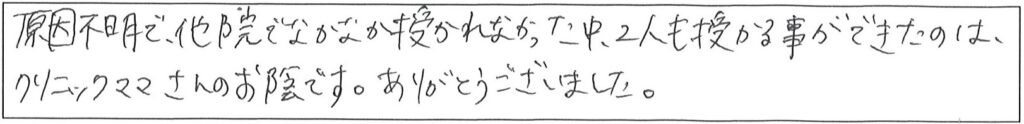 原因不明で、他院でなかなか授かれなかった中、2人も授かる事ができたのは、
クリニックママさんのお陰です。ありがとうございました。